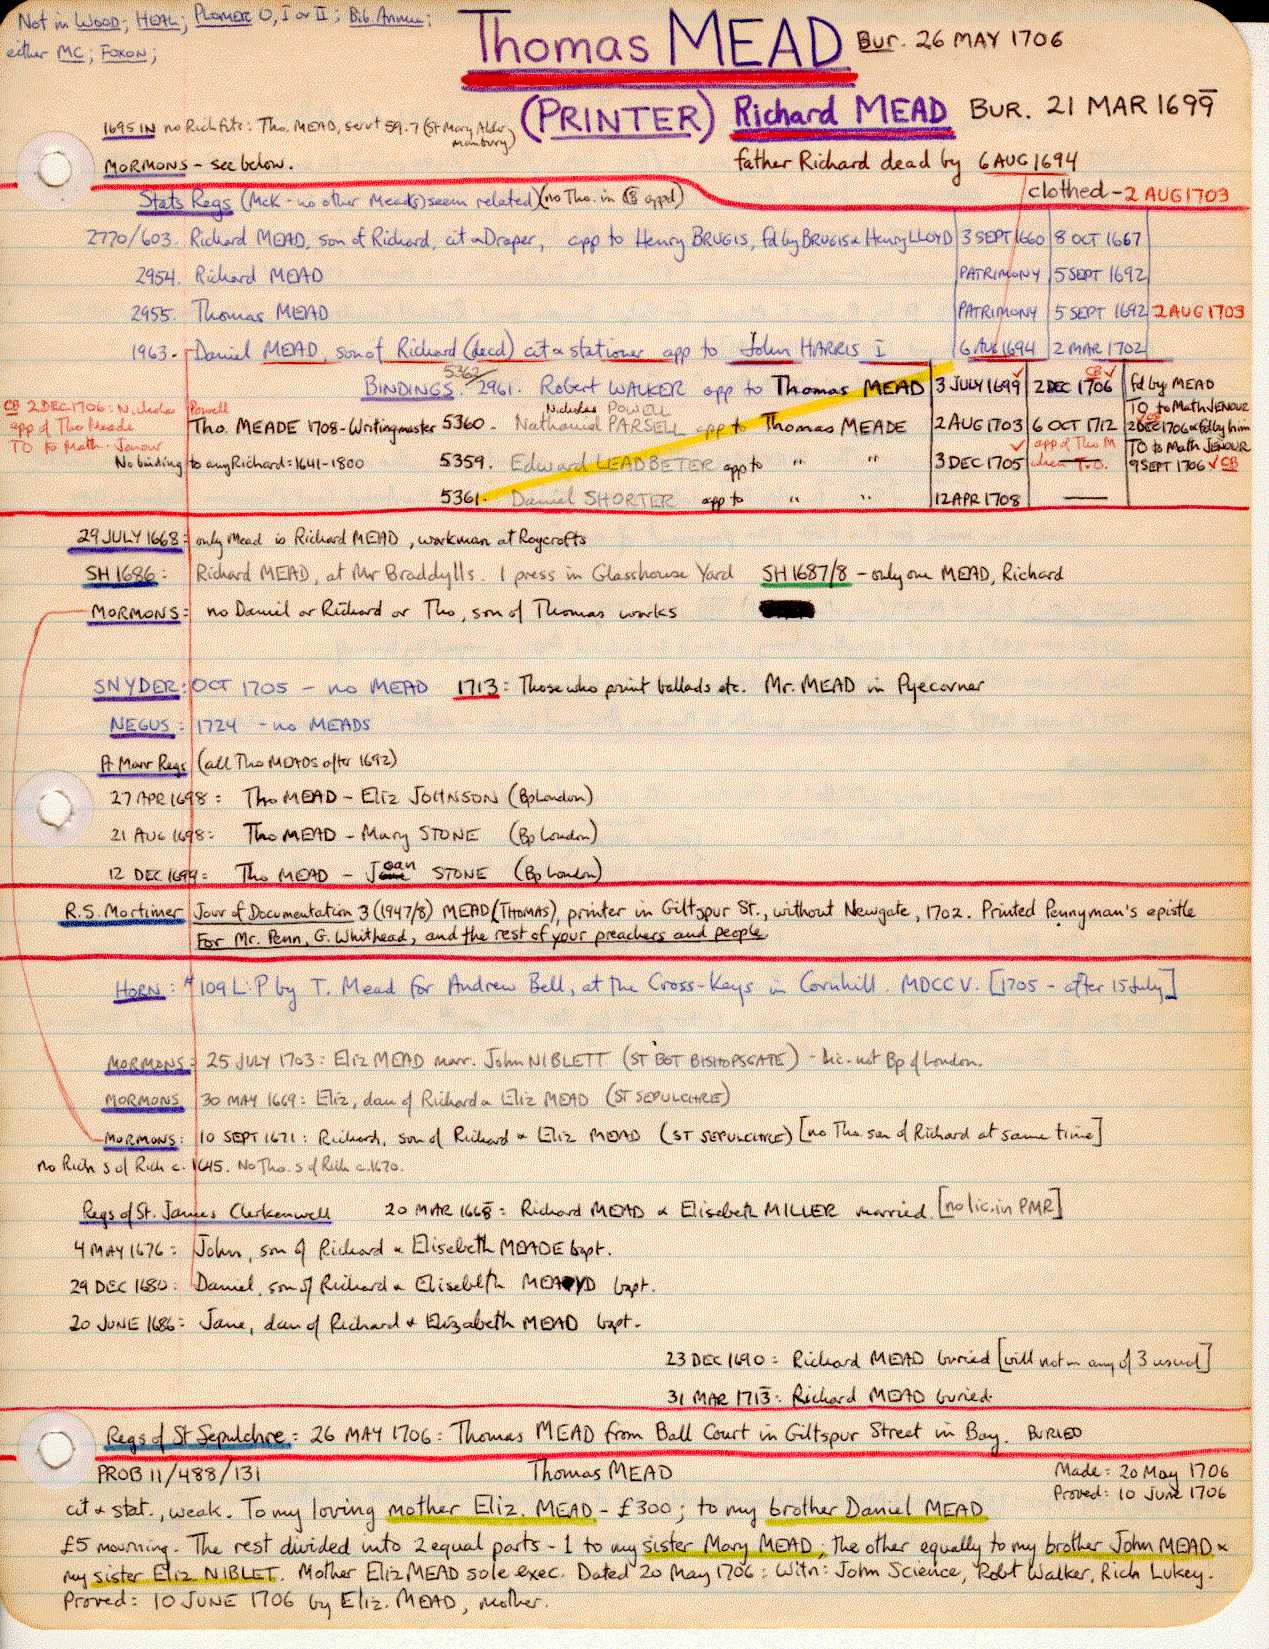 Not in WOOD; HEAL; PLOMER O, I or II; Bib. Annua;
either MC; FOXON;
Thomas MEAD Bur. 26 MAY 1706
(PRINTER) Richard MEAD BUR. 21 MAR 1699
1695 IN no Rich fits: Tho. MEAD, servt 59.7 (St Mary Alder
manbury)
MORMONS - see below.
father Richard dead by 6 AUG 1694
clothed - 2 AUG 1703
Stats Regs (McK - no other Mead(s) seem related) (no Tho. in CB appd)
2770/603. Richard MEAD, son of Richard, cit & Draper, app to Henry BRUGIS, fd by BRUGIS & Henry LLOYD 3 SEPT 1660 8 OCT 1667
2954. Richard MEAD PATRIMONY 5 SEPT 1692
2955. Thomas MEAD PATRIMONY 5 SEPT 1692 2 AUG 1703
1963. Daniel MEAD, son of Richard (decd) cit & stationer app to John HARRIS I 6 AUG 1694 2 MAR 1702
BINDINGS 5362/2961. Robert WALKER app to Thomas MEAD 3 JULY 1699 2 DEC 1706 CB fd by MEAD
TO to Math JENOUR
CB 2 DEC 1706: Nicholas Powell
app of Tho Meade
TO to Math. Jenour
Tho. MEADE 1708 - Writingmaster 5360. Nathaniel PARSELL Nicholas POWELL app to Thomas MEADE 2 AUG 1703 6 OCT 1712 2 DEC 1706 & fd by him
No binding to any Richard: 1641-1800 5359. Edward LEADBETER app to " " 3 DEC 1705 app of Tho M when T.O. TO to Math JENOUR
9 SEPT 1706 CB
5361. Daniel SHORTER app to " " 12 APR 1708 —
29 JULY 1668: only Mead is Richard MEAD, workman at Roycrofts
SH 1686: Richard MEAD, at Mr Braddylls. 1 press in Glasshouse Yard SH 1687/8 - only one MEAD, Richard
MORMONS: no Daniel or Richard or Tho, son of Thomas works
SNYDER: OCT 1705 - no MEAD 1713: Those who print ballads etc. Mr. MEAD in Pyecorner
NEGUS: 1724 - no MEADS
A Marr Regs (all Tho MEADS after 1692)
27 APR 1698: Tho MEAD - Eliz JOHNSON (Bp London)
21 AUG 1698: Tho MEAD - Mary STONE (Bp London)
12 DEC 1699: Tho MEAD - Joan STONE (Bp London)
R.S. Mortimer Jour of Documentation 3 (1947/8) MEAD (THOMAS), printer in Giltspur St., without Newgate, 1702. Printed Pennyman's epistle
For Mr. Penn, G. Whithead, and the rest of your preachers and people
HORN: #109 L: P by T. Mead for Andrew Bell, at the Cross-Keys in Cornhill. MDCCV. [1705 - after 15 July]
MORMONS: 25 JULY 1703: Eliz MEAD marr. John NIBLETT (ST BOT BISHOPSGATE) - Lic. not Bp of London.
MORMONS 30 MAY 1669: Eliz, dau of Richard & Eliz MEAD (ST SEPULCHRE)
MORMONS: 10 SEPT 1671: Richard, son of Richard & Eliz MEAD (ST SEPULCHRE) [no Tho. son of Richard at same time]
no Rich s of Rich c. 1645. No Tho. s of Rich c.1670.
Regs of St. James Clerkenwell 20 MAR 1668: Richard MEAD & Elisebeth MILLER married. [no lic. in PMR]
4 MAY 1676: John, son of Richard & Elisebeth MEADE bapt.
29 DEC 1680: Daniel, son of Richard & Elisebeth MEAD bapt.
20 JUNE 1686: Jane, dau of Richard & Elizabeth MEAD bapt.
23 DEC 1690: Richard MEAD buried [will not in any of 3 usual]
31 MAR 1713: Richard MEAD buried.
Regs of St Sepulchre: 26 MAY 1706: Thomas MEAD from Ball Court in Giltspur Street in Bay. BURIED
PROB 11/488/131 Thomas MEAD Made: 20 May 1706
Proved: 10 June 1706
cit & stat., weak. To my loving mother Eliz. MEAD - £300; to my brother Daniel MEAD
£5 mourning. The rest divided into 2 equal parts - 1 to my sister Mary MEAD; the other equally to my brother John MEAD &
my sister Eliz NIBLET. Mother Eliz MEAD sole exec. Dated 20 May 1706: Witn: John Science, Robt Walker, Rich Lukey.
Proved: 10 JUNE 1706 by Eliz. MEAD, mother.